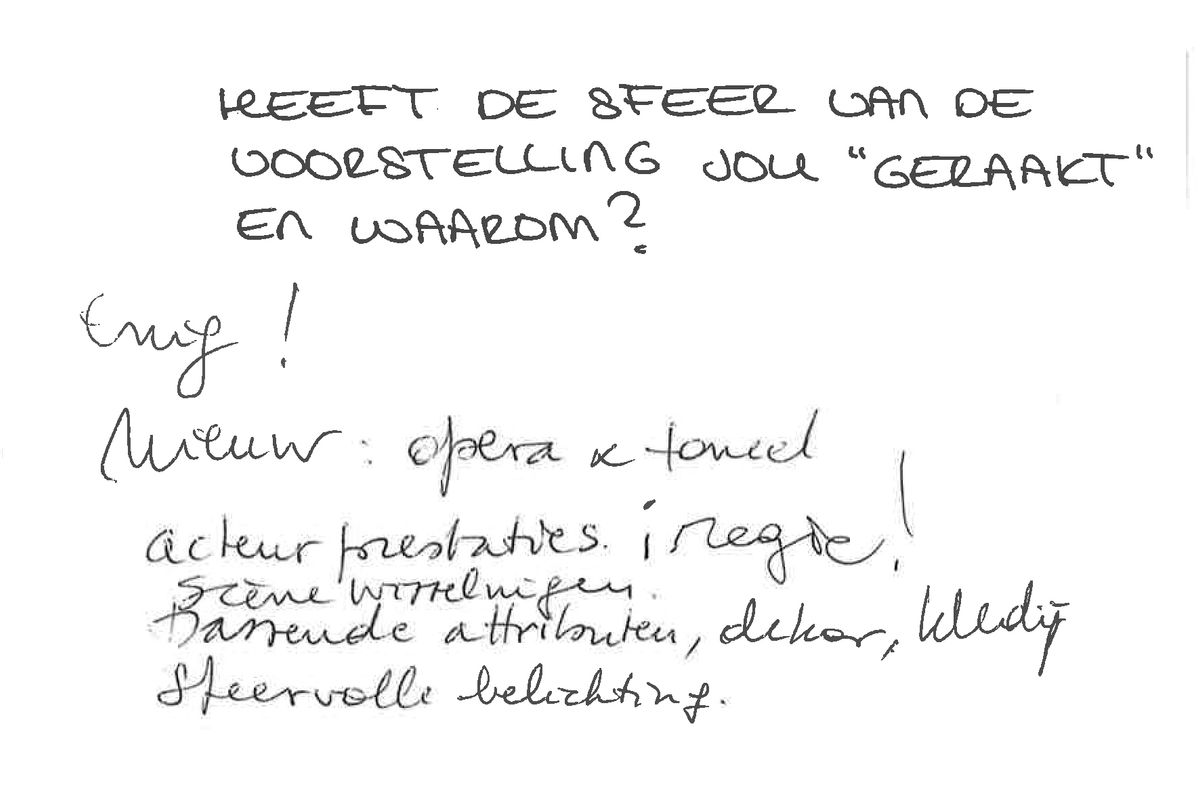 HEEFT DE SFEER VAN DE
VOORSTELLING JOU "GERAAKT"
EN WAAROM?
Enig!
Nieuw: opera & toneel
acteurprestaties. ; regie!
Scène wisselingen.
Passende attributen, dekor, kledij
Sfeervolle belichting.